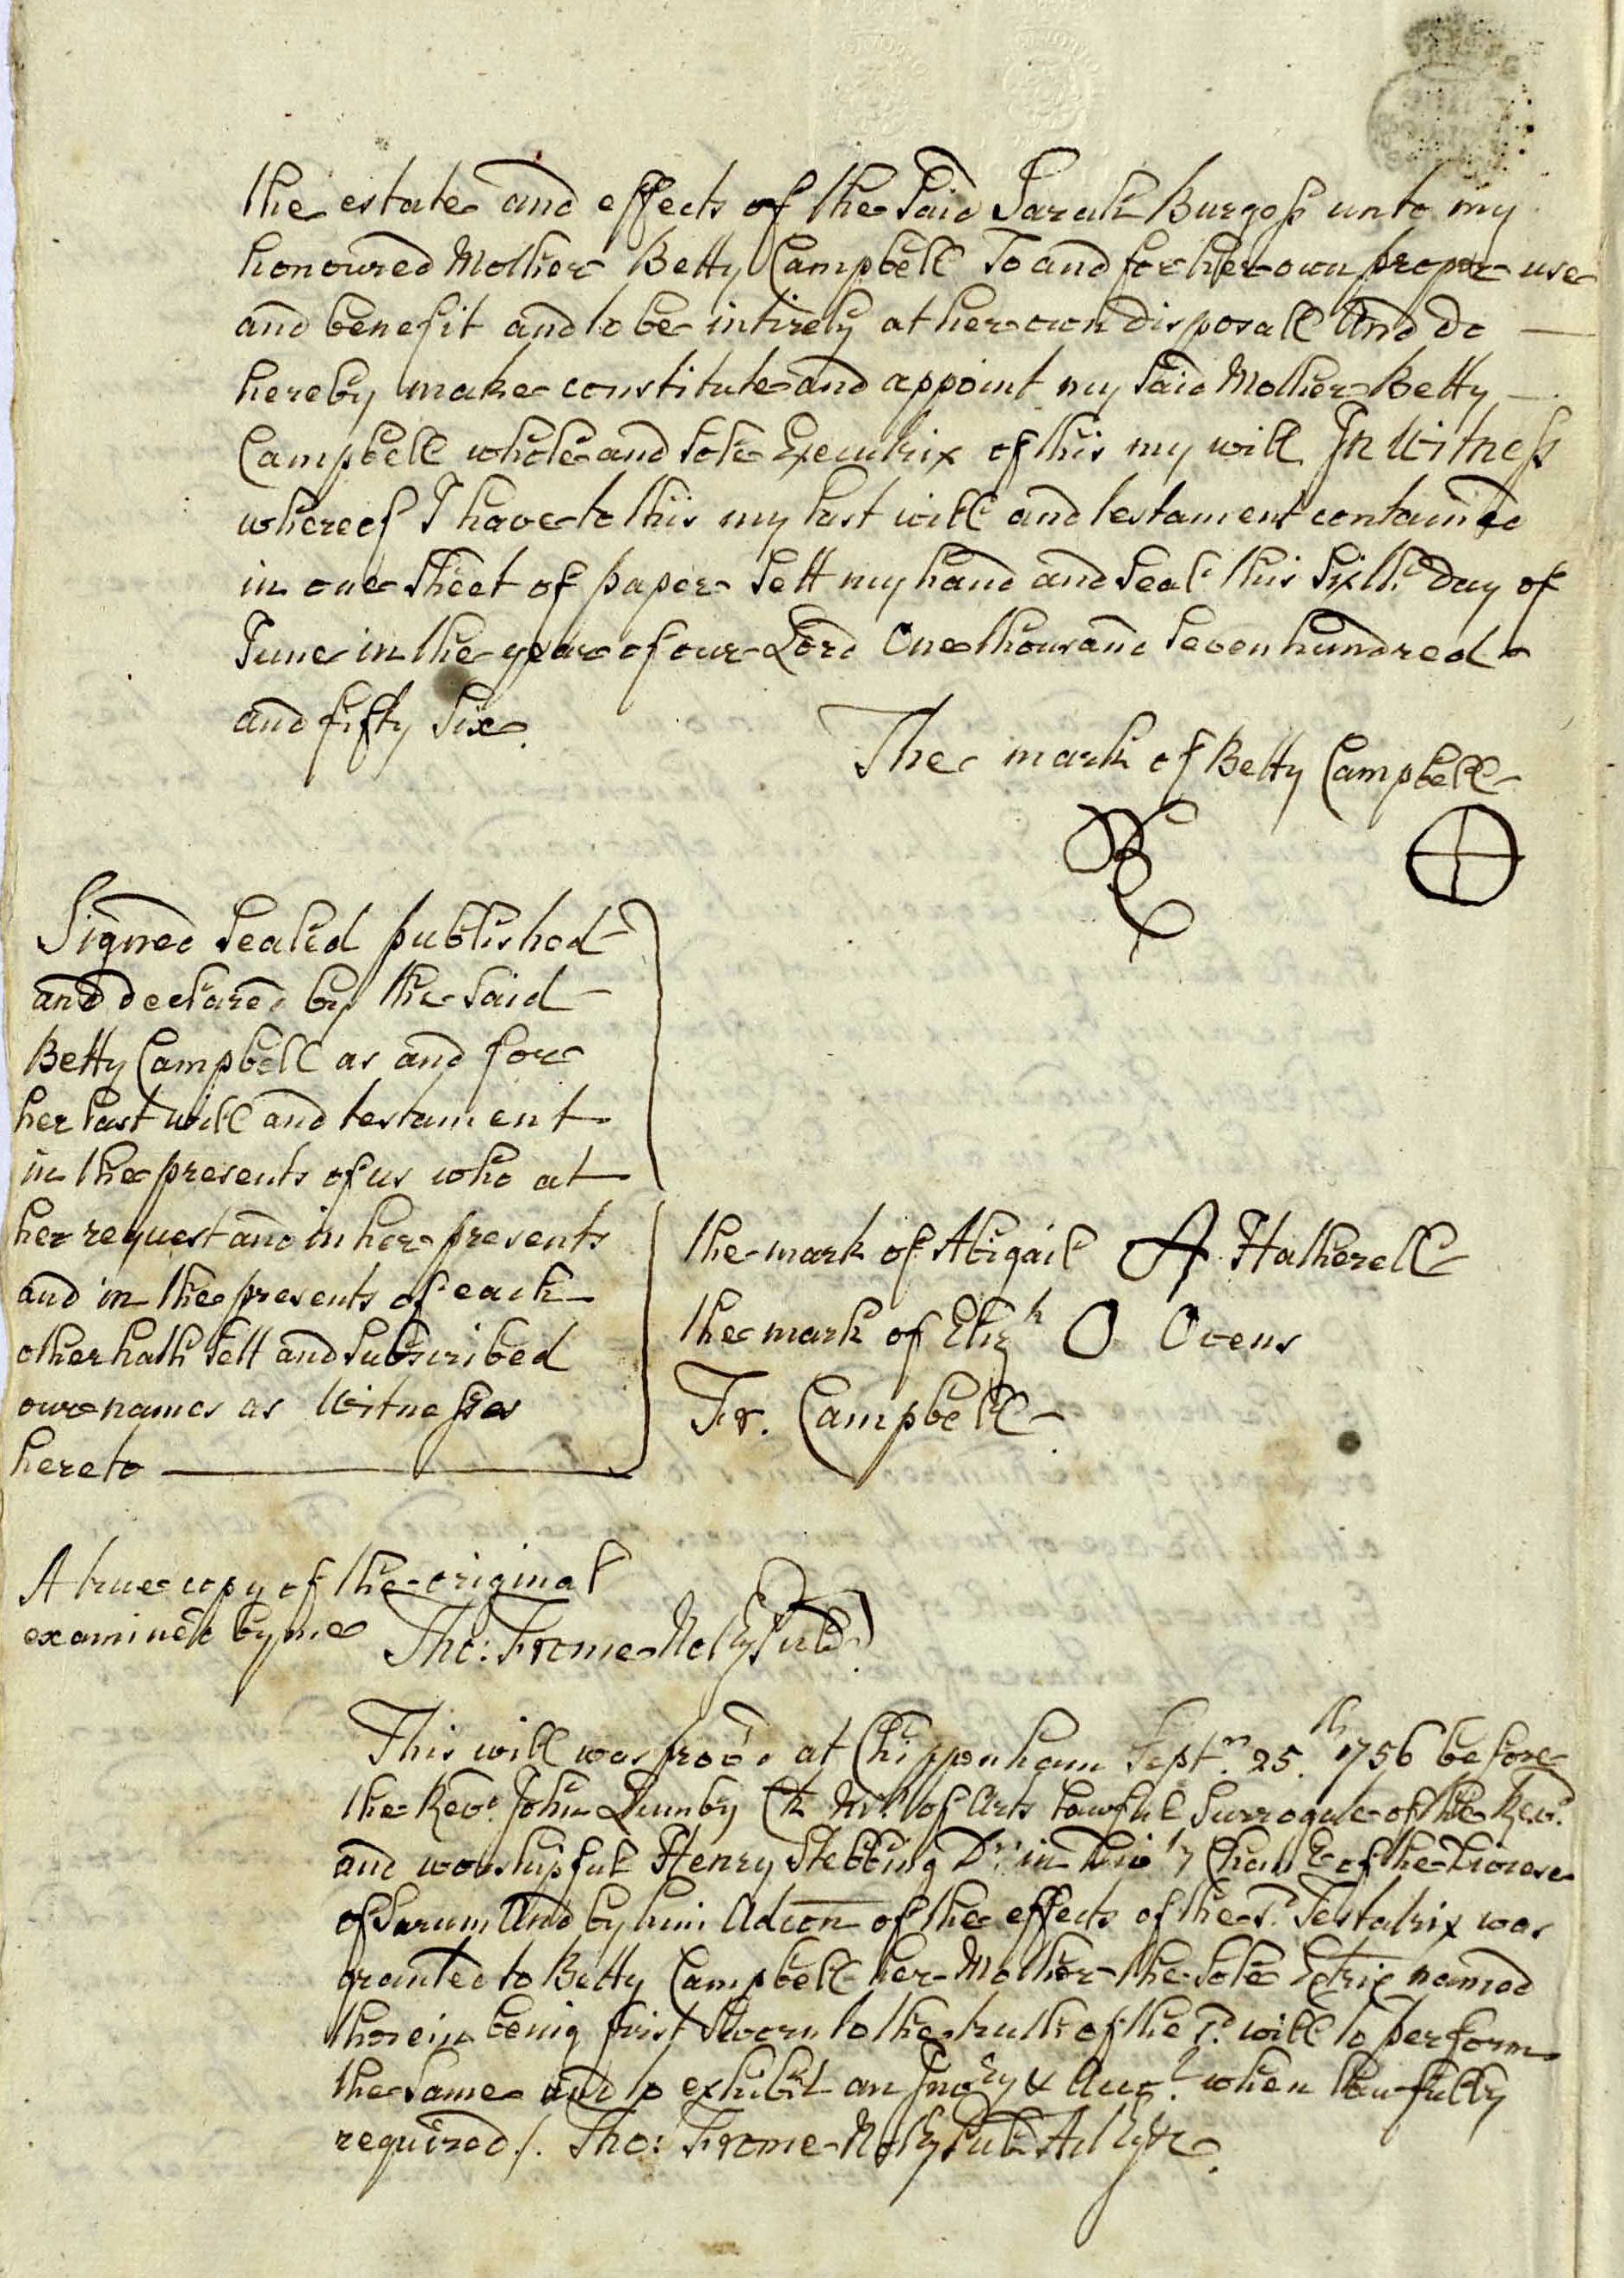 the estate and effects of the said Sarah Burgess unto my
honoured Mother Betty Campbell To and for her own proper use
and benefit and to be intirely at her own disposall And do
hereby make constitute and appoint my said Mother Betty
Campbell whole and sole Executrix of this my will In Witness
whereof I have to this my last will and testament contained
in one sheet of paper sett my hand and seal this sixth Day of
June in the year of our Lord One thousand seven hundred
and fifty six.
The mark of Betty Campbell
BC
Signed sealed published
and declared by the said
Betty Campbell as and for
her last will and testament
in the presents of us who at
her request and in her presents
and in the presents of each
other hath sett and subscribed
our names as Witnesses
hereto
the mark of Abigail A Hatherell
the mark of Elizh O Ovens
Fr. Campbell
A true copy of the original
examined by me
Tho: Frome Not Pub
This will was prov'd at Chippenham Septr. 25th. 1756 before
the Revd. John Lumby Clk Mr. of Arts lawful Surrogate of the Revd.
and worshipful Henry Stebbing Dr. in Divity Chan of the Diocese
of Sarum And by him Adcon of the effects of the sd. Testatrix was
granted to Betty Campbell her Mother the sole Extrix named
therein being first sworn to the truth of the sd. will to perform
the same and to exhibit an Invry & Acct. when lawfully
required /. Tho: Frome Not Pub